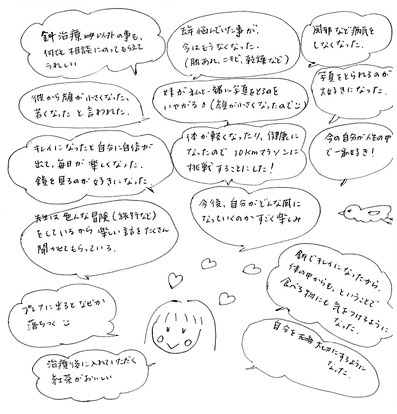 鍼治療以外の事も、
何でも相談にのってもらえて
うれしい
去年悩んでいた事が、
今はもうなくなった。
(肌あれ、ニキビ、乾燥など)
風邪など病気を
しなくなった。
彼から顔が小さくなった、
若くなったと言われた。
妹が私と一緒に写真をとるのを
いやがる!(顔が小さくなったので)
写真をとられるのが
大好きになった。
キレイになったと自分に自信が
出て、毎日が楽しくなった。
鏡を見るのが好きになった
体が軽くなったり、健康に
なったので10kmマラソンに
挑戦することにした!
今の自分が人生の中で
一番好き!
先生は色んな冒険(旅行など)
をしているから楽しい話をたくさん
聞かせてもらっている。
今後、自分がどんな風に
なっていくのかすごく楽しみ
鍼でキレイになったから、
体の中からも、ということで
食べる物にも気をつけるように
なった。
に来るとなぜか
落ちつく
治療後に入れていただく
紅茶がおいしい
自分を大切にするように
なった。